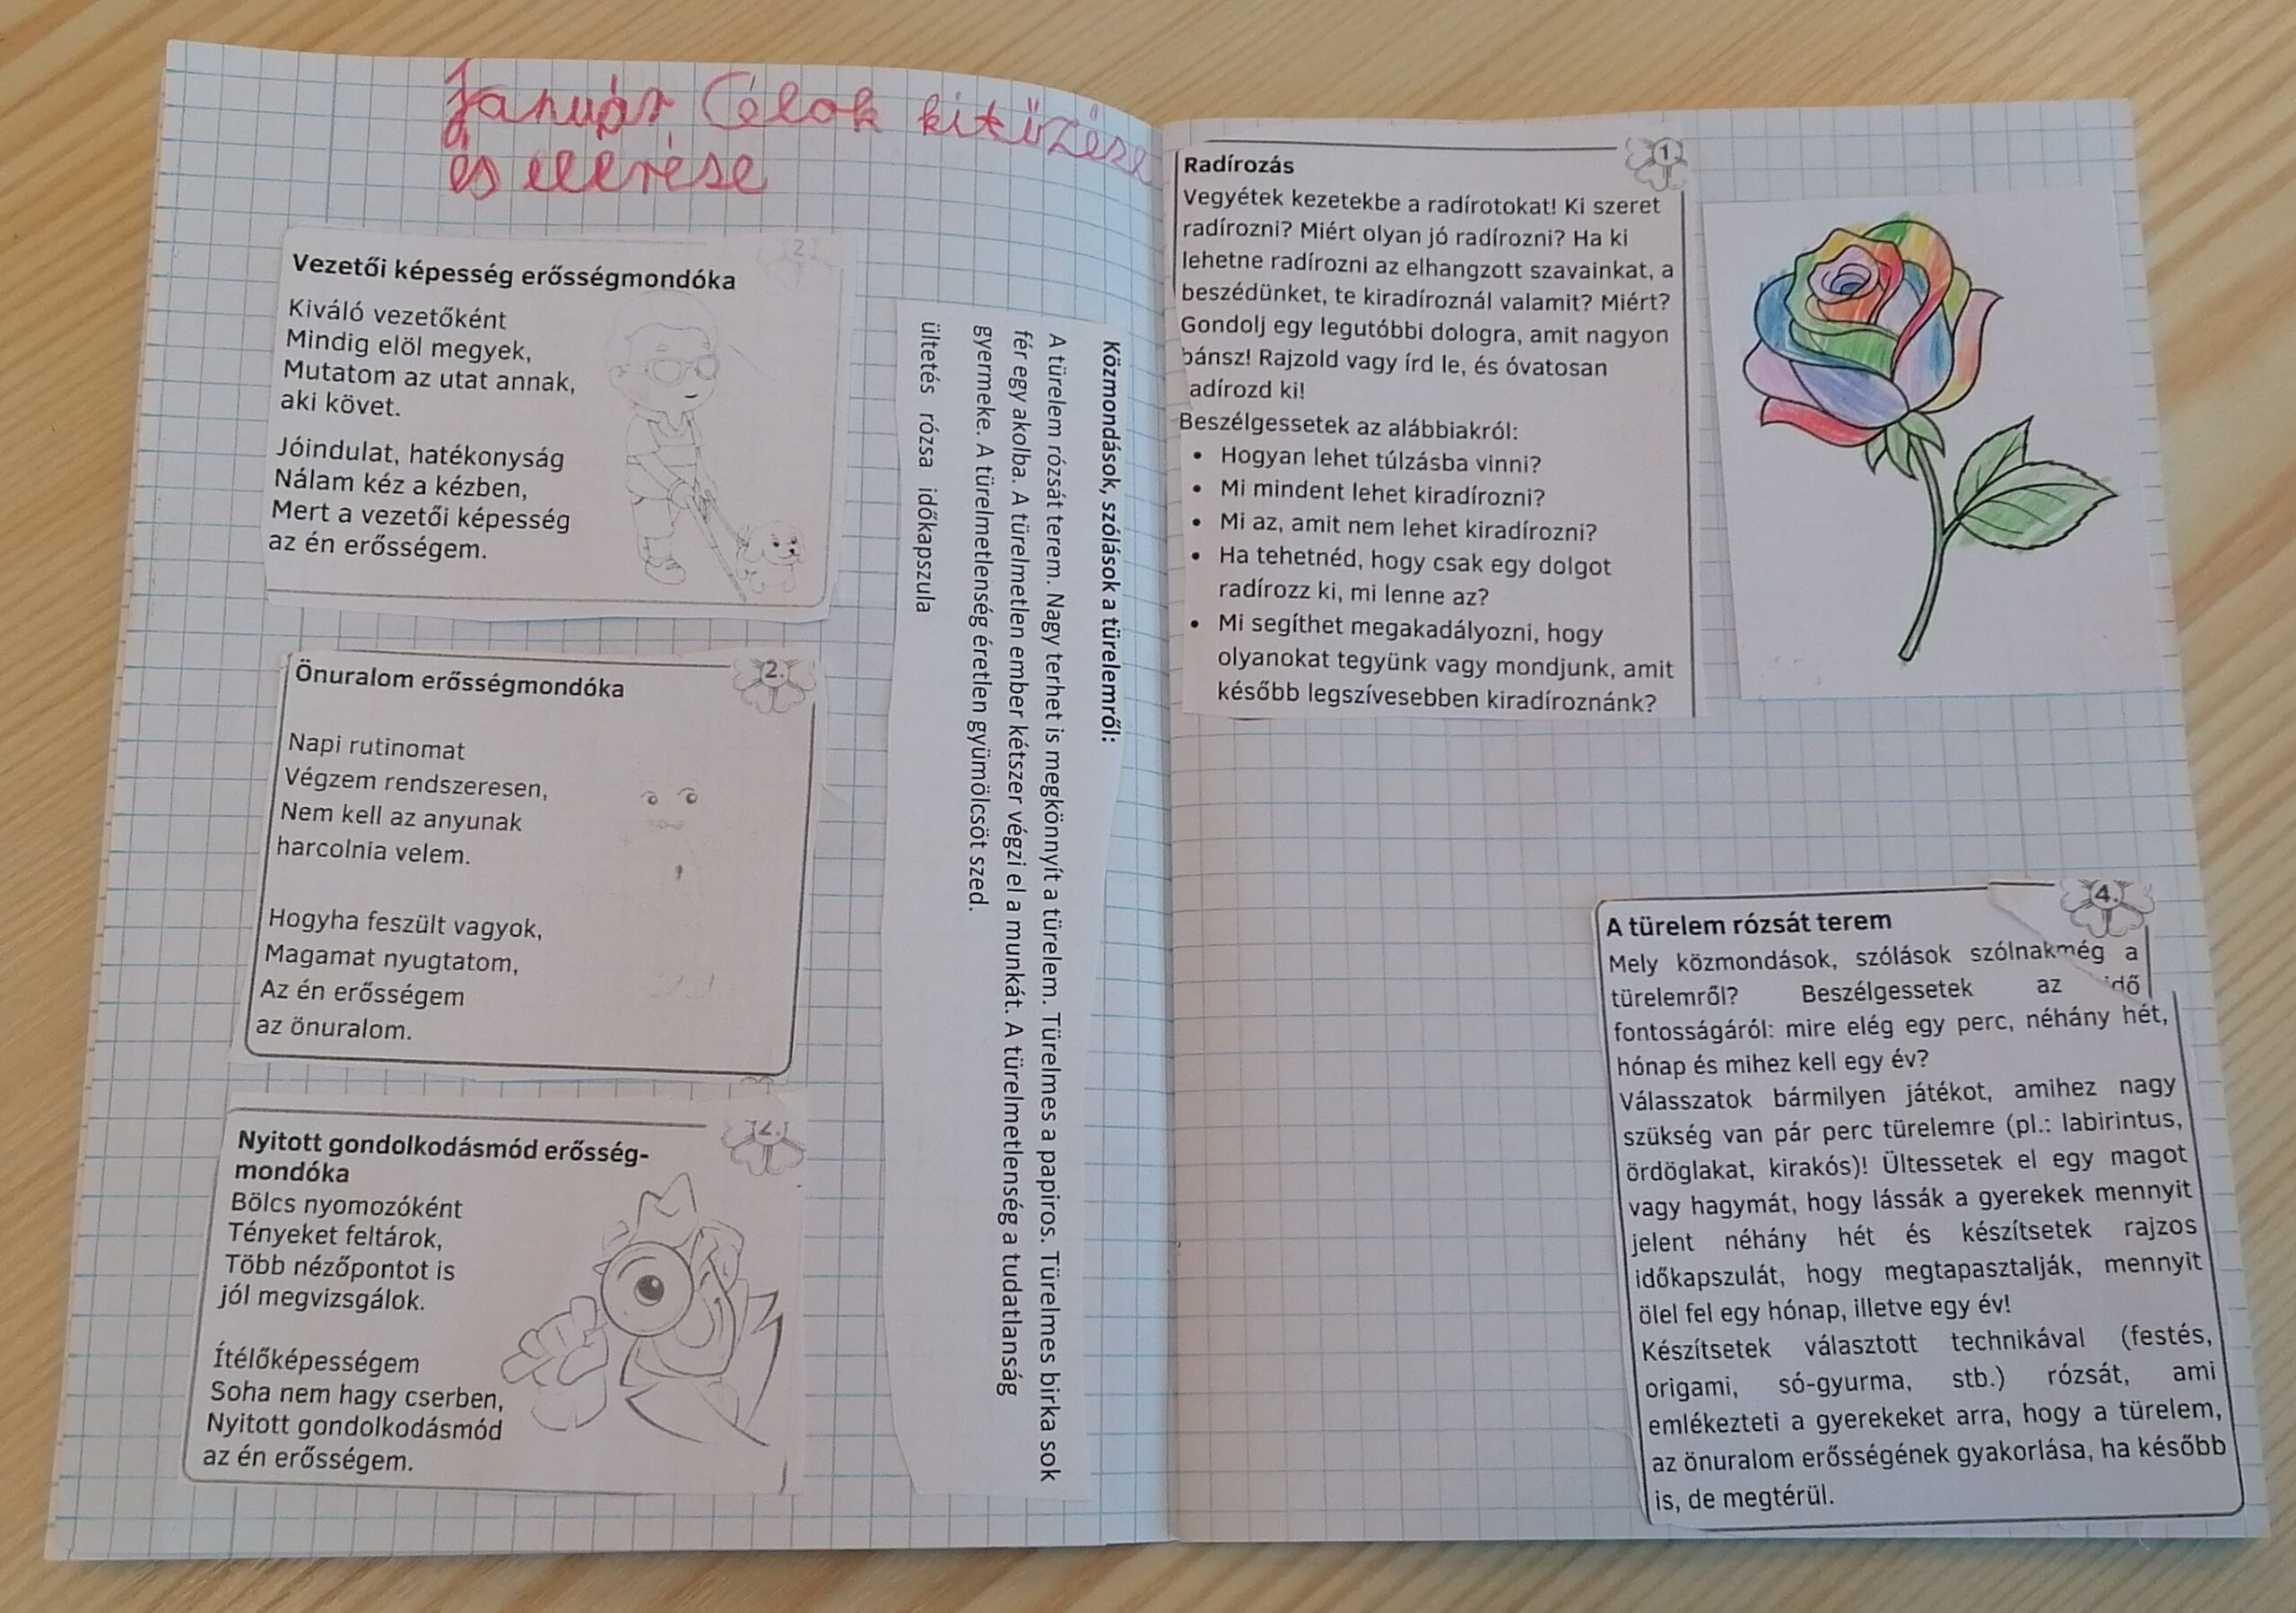 Január Célok kitűzése
és elérése
2
Vezetői képesség erősségmondóka
Kiváló vezetőként
Mindig elöl megyek,
Mutatom az utat annak,
aki követ.
Jóindulat, hatékonyság
Nálam kéz a kézben,
Mert a vezetői képesség
az én erősségem.
2.
Önuralom erősségmondóka
Napi rutinomat
Végzem rendszeresen,
Nem kell az anyunak
harcolnia velem.
Hogyha feszült vagyok,
Magamat nyugtatom,
Az én erősségem
az önuralom.
2.
Nyitott gondolkodásmód erősség-
mondóka
Bölcs nyomozóként
Tényeket feltárok,
Több nézőpontot is
jól megvizsgálok.
Ítélőképességem
Soha nem hagy cserben,
Nyitott gondolkodásmód
az én erősségem.
Közmondások, szólások a türelemről:
A türelem rózsát terem. Nagy terhet is megkönnyít a türelem. Türelmes a papiros. Türelmes birka sok
fér egy akolba. A türelmetlen ember kétszer végzi el a munkát. A türelmetlenség a tudatlanság
gyermeke. A türelmetlenség éretlen gyümölcsöt szed.
ültetés rózsa időkapszula
1.
Radírozás
Vegyétek kezetekbe a radírotokat! Ki szeret
radírozni? Miért olyan jó radírozni? Ha ki
lehetne radírozni az elhangzott szavainkat, a
beszédünket, te kiradíroznál valamit? Miért?
Gondolj egy legutóbbi dologra, amit nagyon
bánsz! Rajzold vagy írd le, és óvatosan
adírozd ki!
Beszélgessetek az alábbiakról:
• Hogyan lehet túlzásba vinni?
• Mi mindent lehet kiradírozni?
• Mi az, amit nem lehet kiradírozni?
• Ha tehetnéd, hogy csak egy dolgot
radírozz ki, mi lenne az?
• Mi segíthet megakadályozni, hogy
olyanokat tegyünk vagy mondjunk, amit
később legszívesebben kiradíroznánk?
4.
A türelem rózsát terem
Mely közmondások, szólások szólnak még a
türelemről? Beszélgessetek az idő
fontosságáról: mire elég egy perc, néhány hét,
hónap és mihez kell egy év?
Válasszatok bármilyen játékot, amihez nagy
szükség van pár perc türelemre (pl.: labirintus,
ördöglakat, kirakós)! Ültessetek el egy magot
vagy hagymát, hogy lássák a gyerekek mennyit
jelent néhány hét és készítsetek rajzos
időkapszulát, hogy megtapasztalják, mennyit
ölel fel egy hónap, illetve egy év!
Készítsetek választott technikával (festés,
origami, só-gyurma, stb.) rózsát, ami
emlékezteti a gyerekeket arra, hogy a türelem,
az önuralom erősségének gyakorlása, ha később
is, de megtérül.